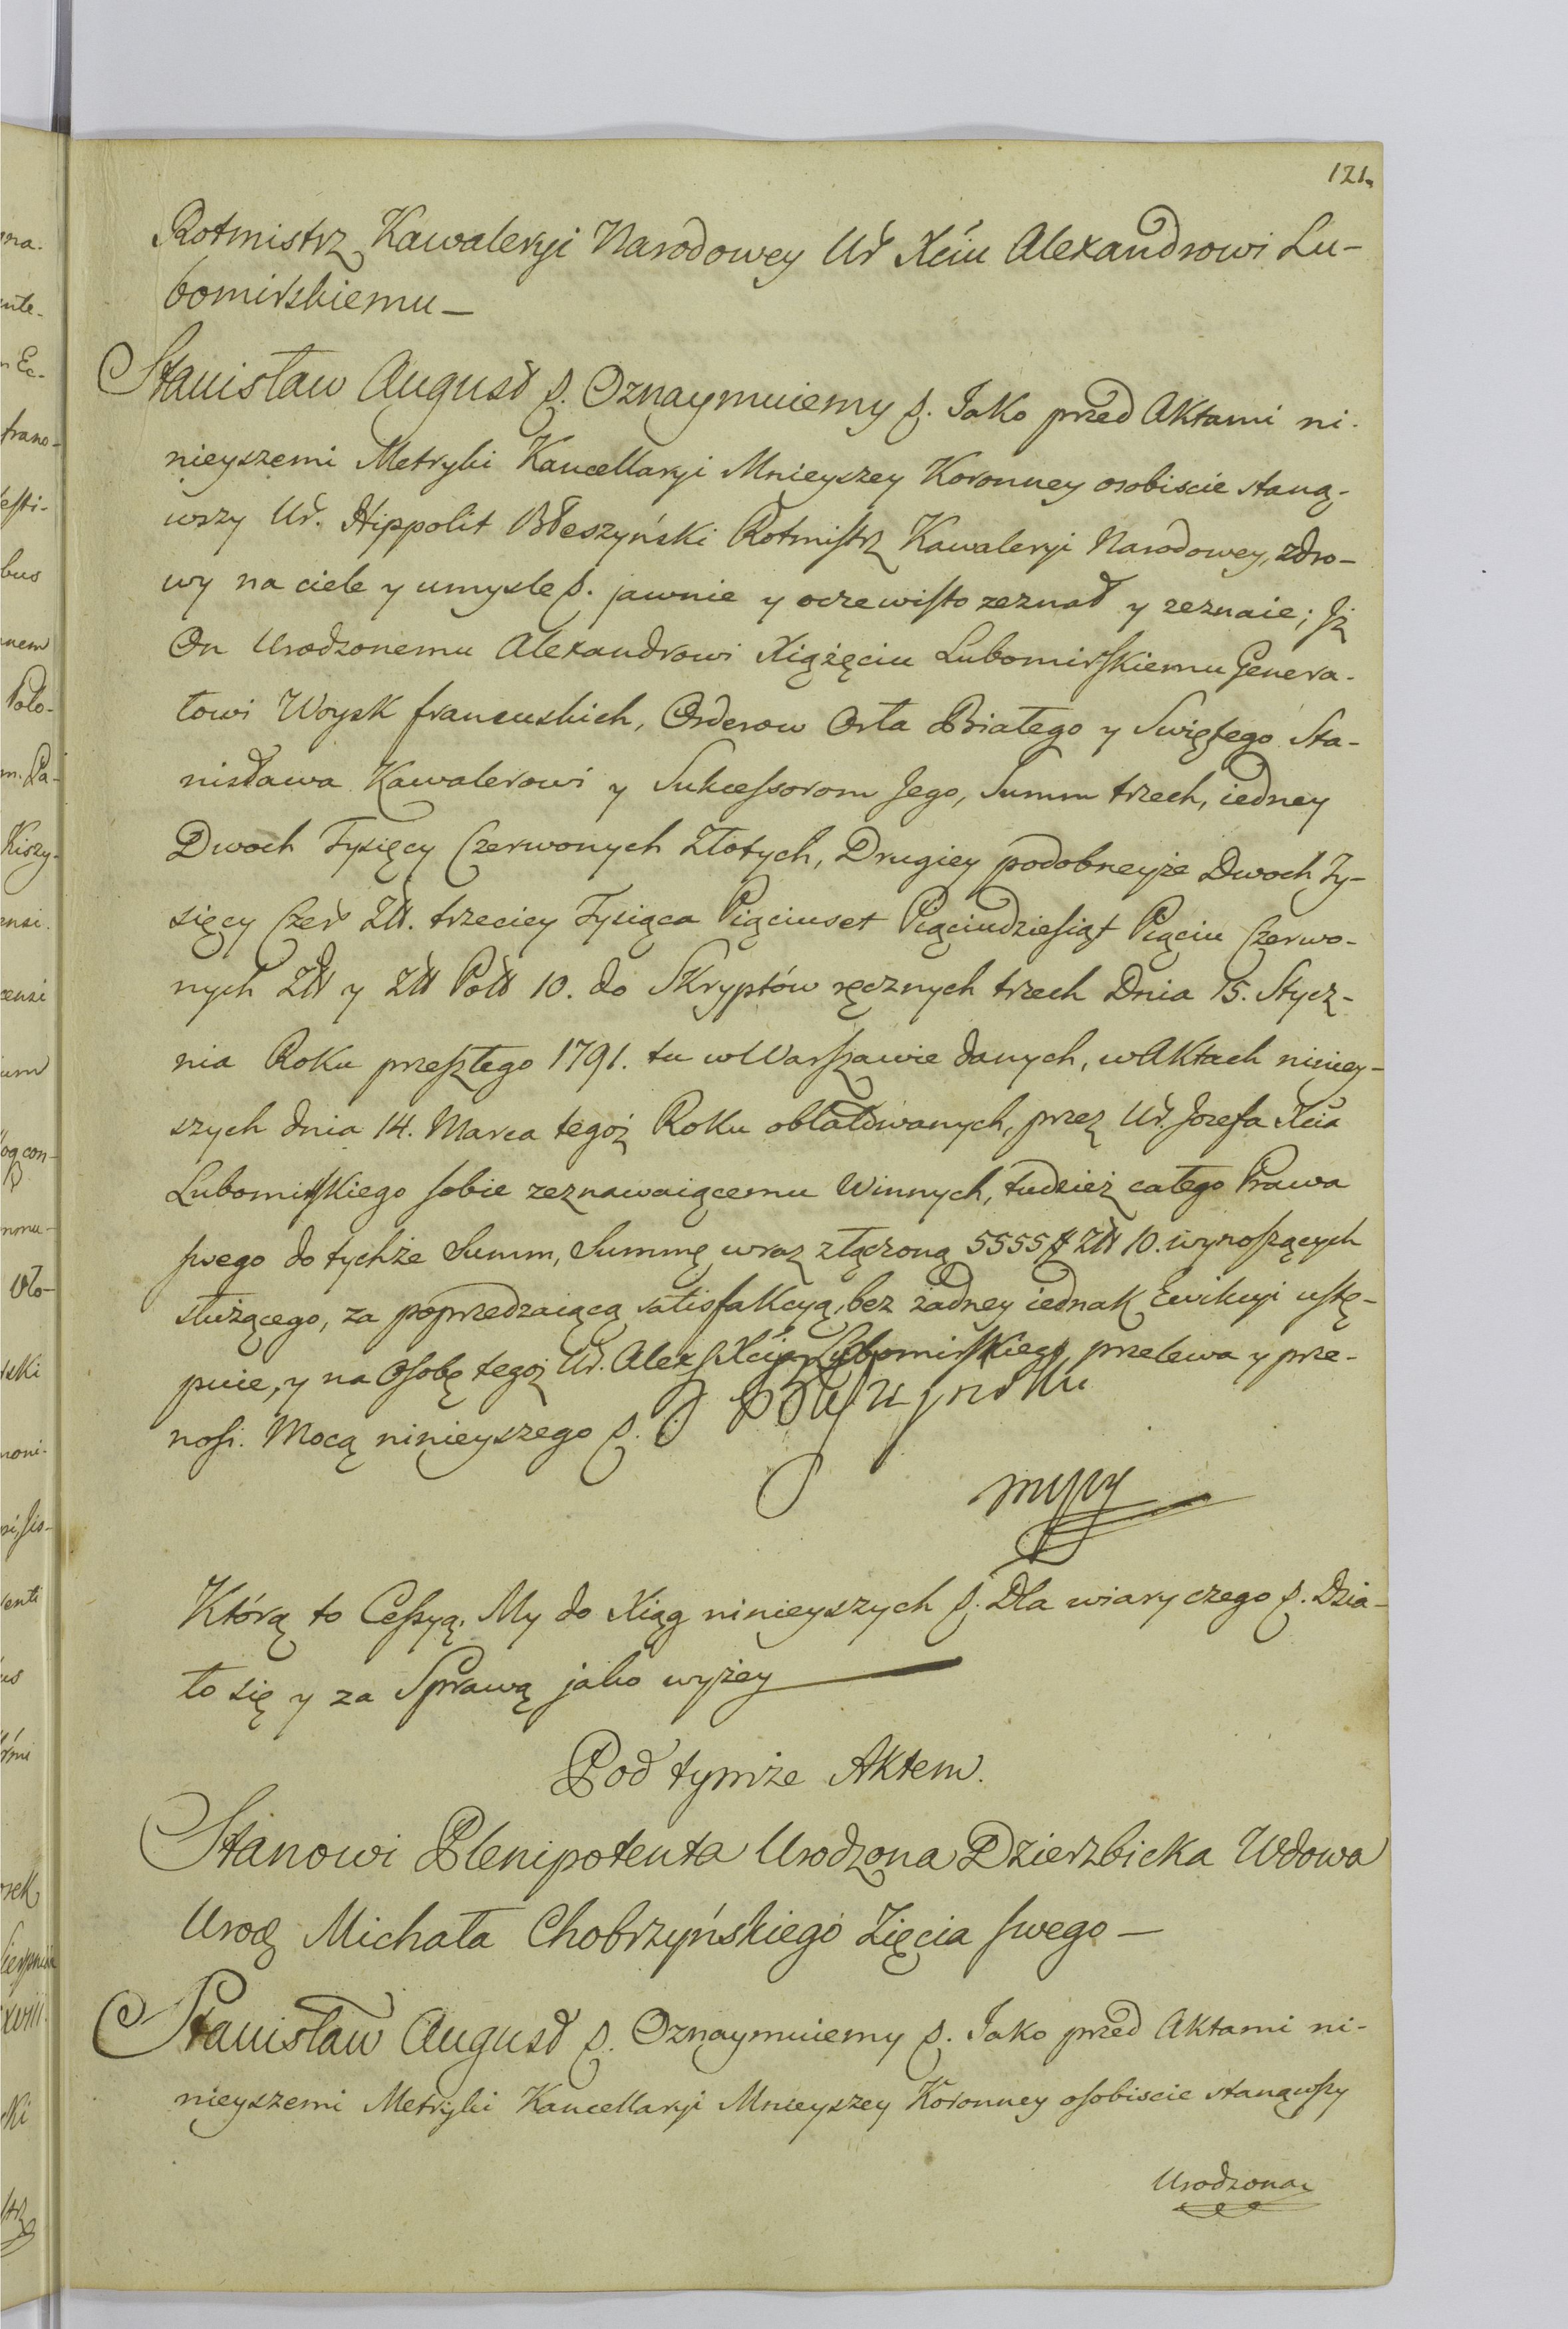 121.
Rotmistrz Kawaleryi Narodowey Ur Xciu Alexandrowi Lu-
bomirskiemu —
Stanisław August p. Oznaymuiemy p. Jako przed Aktami ni-
nieyszemi Metryki Kancellaryi Mnieyszey Koronney osobiscie staną-
wszy Ur. Hippolit Błeszyński Rotmistrz Kawaleryi Narodowey, zdro-
wy na ciele y umysle p. jawnie y oczewisto zeznał y zeznaie; Jż
On Urodzonemu Alexandrowi Xiążęciu Lubomirskiemu Genera-
łowi Woysk francuskich, Orderow Orła Białego y Swiętego Sta-
nisława Kawalerowi y Sukcessorom Jego, Summ trzech, iedney
Dwoch Tysięcy Czerwonych Złotych, Drugiey podobneyże Dwoch Ty-
sięcy Czer Złł. trzeciey Tysiąca Pięciuset Pięciudziesiąt Pięciu Czerwo-
nych Złł y Złł Poll 10. do Skryptów ręcznych trzech Dnia 15. Stycz-
nia Roku przeszłego 1791. tu w Warszawie danych, w Aktach niniey-
szych dnia 14. Marca tegoż Roku oblatowanych, przez Ur. Jozefa Xcia
Lubomirskiego sobie zeznawaiącemu Winnych, tudzież całego Prawa
swego do tychże Summ, Summę wraz złączoną 5555 # Złł 10. wynoszących
służącego, za poprzedzaiącą satisfakcyą, bez żadney iednak Ewikcyi ustę-
puie, y na Osobę tegoż Ur. Alex Xcia Lubomirskiego przelewa y prze-
nosi. Mocą ninieyszego p.
mppy
Którą to Cessyą, My do Xiąg ninieyszych p. Dla wiary czego p. Dzia-
ło się y za Sprawą jako wyżey
Pod tymże Aktem.
Stanowi Plenipotenta Urodzona Dzierzbicka Wdowa
Urodz Michała Chobrzyńskiego Zięcia swego —
Stanisław August p. Oznaymuiemy p. Jako przed Aktami ni-
nieyszemi Metryki Kancellaryi Mnieyszey Koronney osobiscie stanąwszy
Urodzona